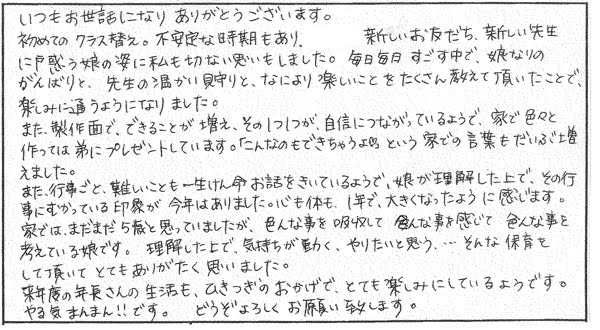 いつもお世話になり ありがとうございます。
初めての クラス替え。不安定な時期もあり、 新しいお友だち、新しい先生
に戸惑う娘の姿に私も切ない思いもしました。毎日毎日 すごす中で、娘なりの
がんばりと、先生の温かい見守りと、なにより楽しいことをたくさん教えて頂いたことで、
楽しみに通うようになりました。
また、製作面で、できることが 増え、その1つ1つが、自信につながっているようで、家で色々と
作っては弟にプレゼントしています。「こんなのもできちゃうよ という 家での言葉もだいぶ増
えました。
また、行事ごと、難しいことも一生けん命 お話をきいているようで、娘が理解した上で、その行
事にむかっている印象が 今年はありました。心も体も、1年で、大きくなったように感じます。
家では、まだまだ5歳と思っていましたが、色んな事を吸収して 色んな事を感じて 色んな事を
考えている娘です。 理解した上で、気持ちが動く、やりたいと思う、… そんな 保育を
して頂いて とてもありがたく 思いました。
来年度の年長さんの生活も、ひきつぎのおかげで、とても楽しみにしているようです。
やる気まんまん!!です。 どうぞよろしく お願い致します。